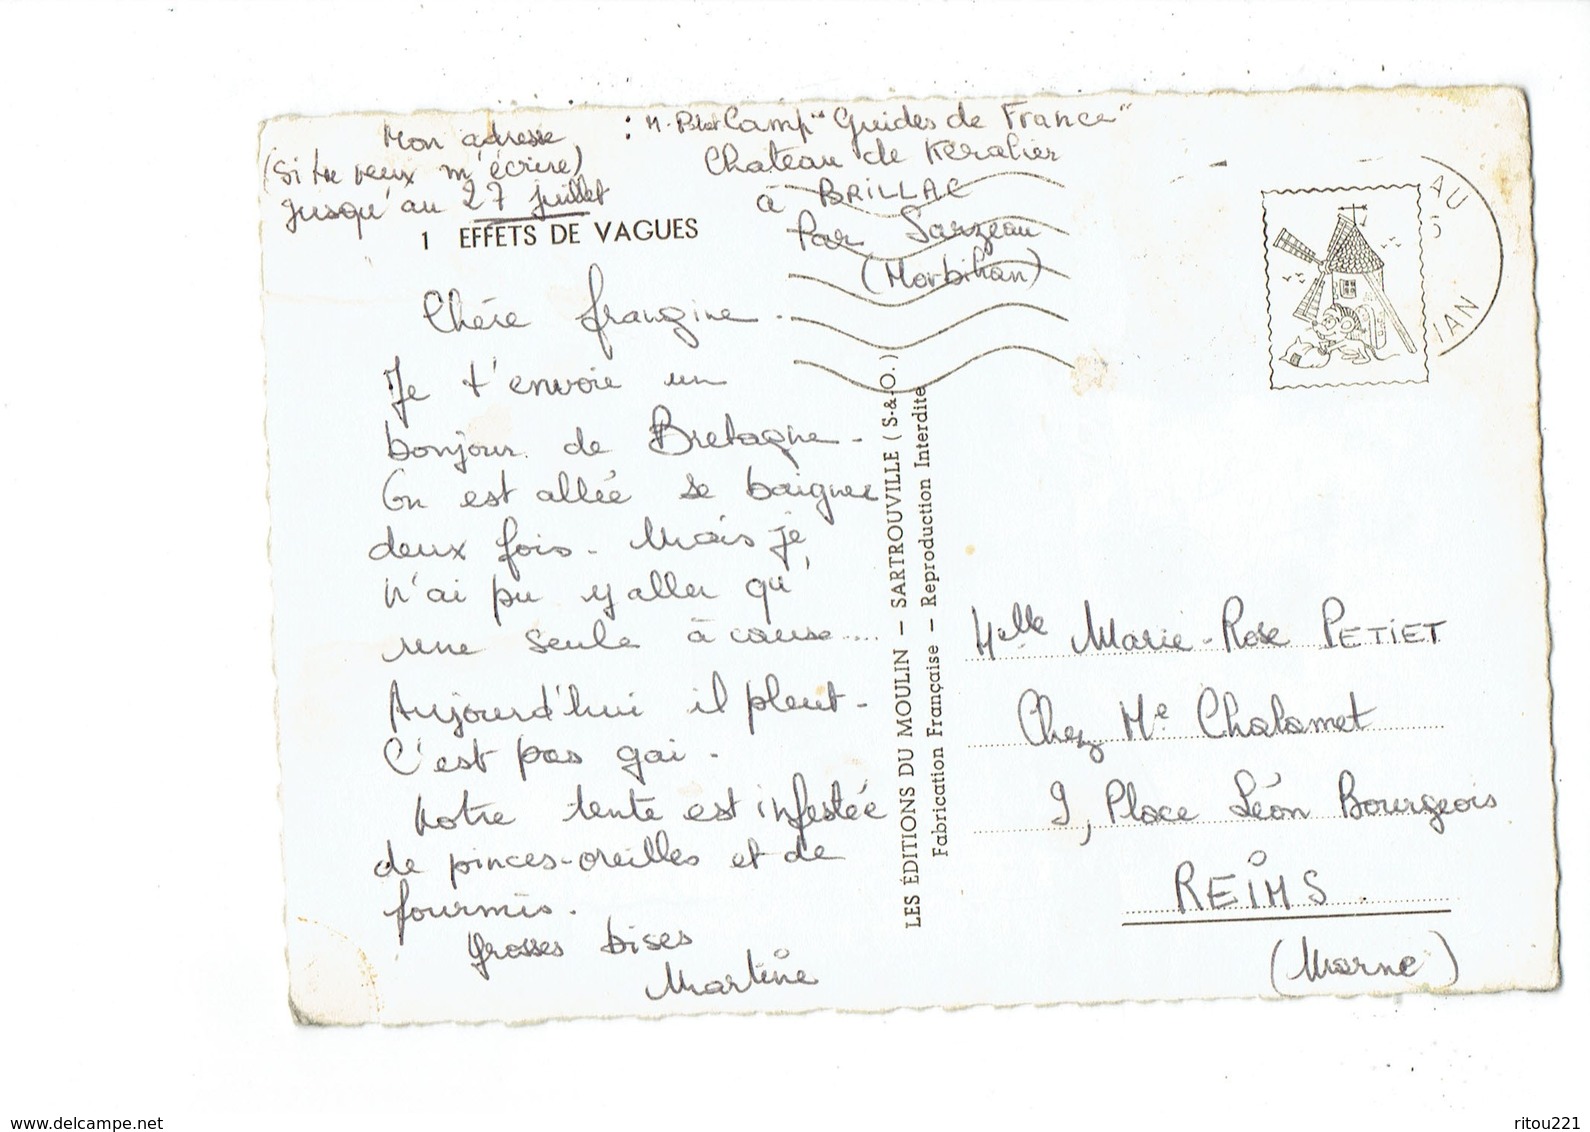 Mon adresse
(Si tu veux m'écrire)
Jusqu'au 27 juillet
: Camp "Guides de France"
Chateau de Keralier
à BRILLAC
Par Sarzeau
(Morbihan)
1 EFFETS DE VAGUES
Chère frangine.
Je t'envoie un
bonjour de Bretagne.
On est allée se baigner
deux fois. Mais je
n'ai pu y aller qu'
une seule à cause....
Aujourd'hui il pleut.
C'est pas gai.
Notre tente est infestée
de pinces-oreilles et de
fourmis.
Grosses bises
Martine
LES ÉDITIONS DU MOULIN — SARTROUVILLE (S.-&-O.)
Fabrication Française — Reproduction Interdite
AU
IAN
Melle Marie-Rose PETIET
Chez Me Chalamet
9, Place Léon Bourgeois
REIMS
(Marne)
www.delcampe.net
ritou221